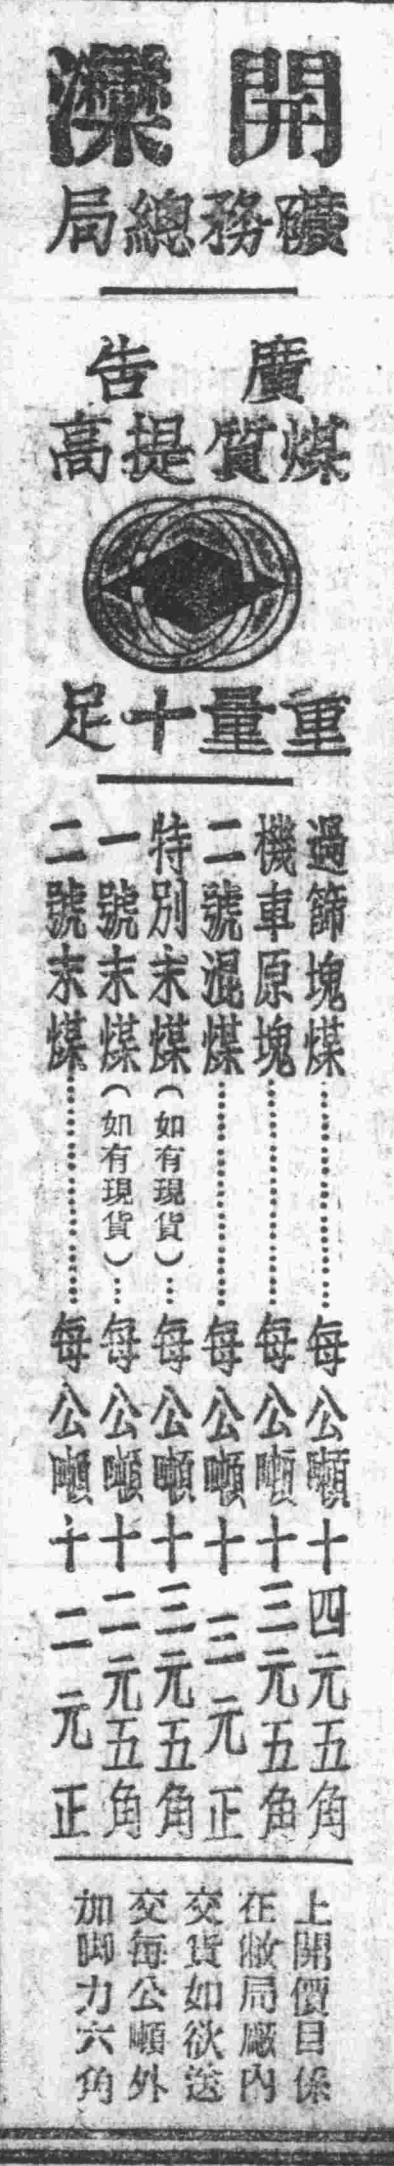 開灤
礦務總局
廣告
煤質提高
重量十足
過篩塊煤……………每公噸十四元五角
機車原塊……………每公噸十三元五角
二號混煤……………每公噸十三元正
特別末煤(如有現貨)…每公噸十三元五角
一號末煤(如有現貨)…每公噸十二元五角
二號末煤……………每公噸十二元正
上開價目係
在敝局廠內
交貨如欲送
交每公噸外
加脚力六角